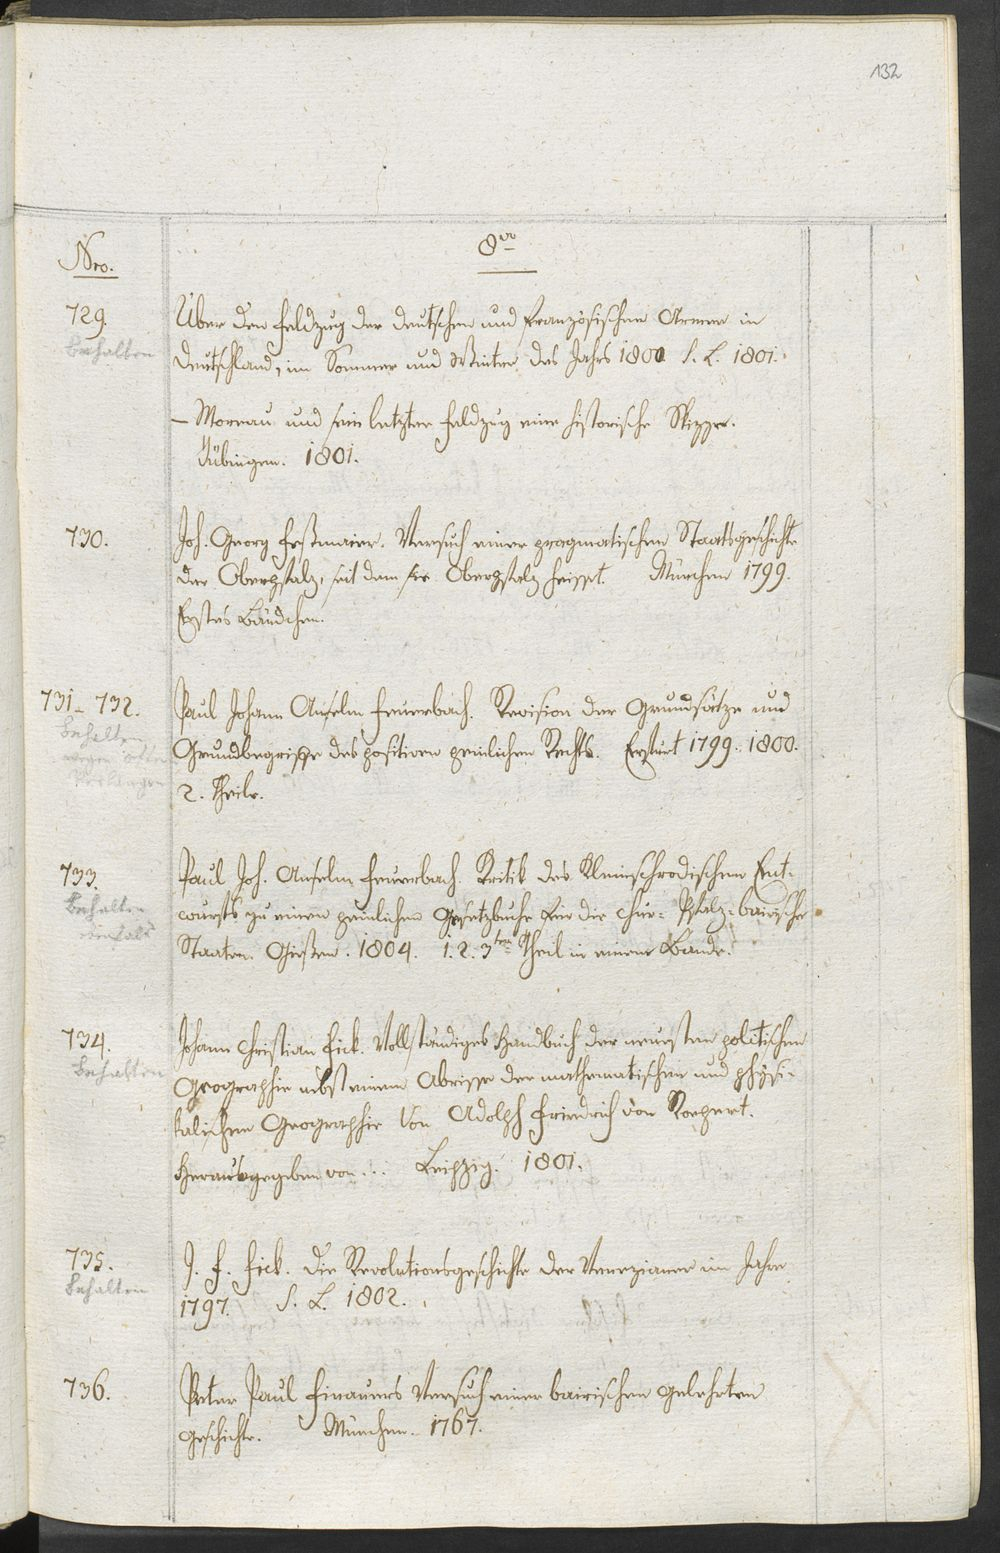 132
Nro.
8vo
729.
Behalten
Über den Feldzug der deutschen und französischen Armee in
Deutschland, im Sommer und Winter des Jahrs 1800 S. L. 1801.
– Moreau und sein letzter Feldzug eine historische Skizze.
Tübingen. 1801.
730.
Joh. Georg Feßmaier. Versuch einer pragmatischen Staatsgeschichte
der Oberpfalz, seit dem sie Oberpfalz heisst. München 1799.
Erstes Bändchen.
731–732.
Behalten
wegen
Paul Johann Anselm Feuerbach. Revision der Grundsätze und
Grundbegriffe des positiven peinlichen Rechts. Erfurt 1799. 1800.
2. Theile.
733.
Behalten
Paul Joh. Anselm Feuerbach. Kritik des Kleinschrodischen Ent-
wurfs zu einem peinlichen Gesetzbuche für die Chur- Pfalz-bairische
Staaten. Gießen. 1804. 1. 2. 3ter Theil in einem Bande.
734.
Behalten
Johann Christian Fick. Vollständiges Handbuch der neuesten politischen
Geographie nebst einem Abrisse der mathematischen und physi-
kalischen Geographie Von Adolph Friedrich von
Herausgegeben von... Leipzig. 1801.
735.
Behalten
J. F. Fick. Die Revolutionsgeschichte der Venezianer im Jahre
1797. S. L. 1802.
736.
Peter Paul Finauers Versuch einer bairischen gelehrten
Geschichte. München. 1767.